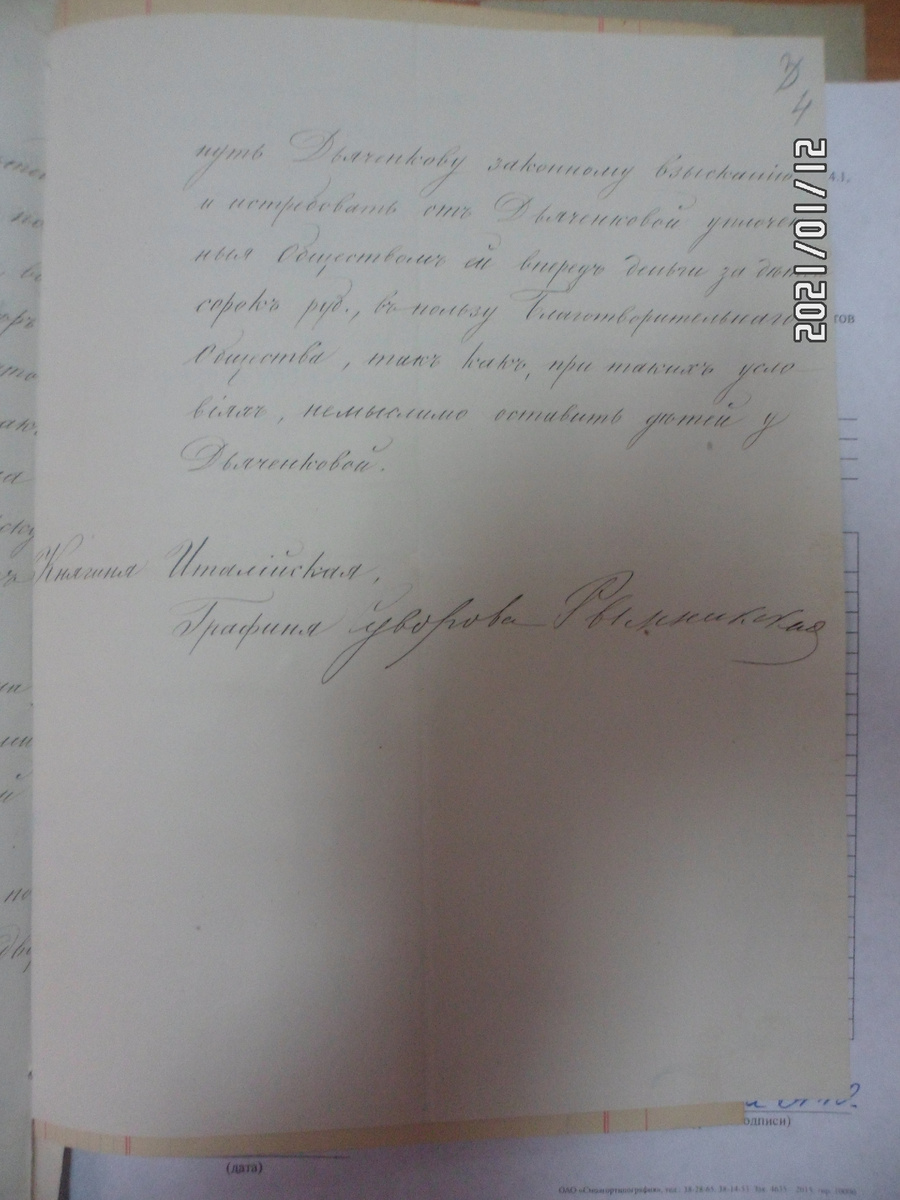 3
4
нуть Дьяченкову законному взысканію
и истребовать отъ Дьяченковой уплочен
ныя Обществомъ ей впередъ деньги за дѣтей
сорокъ руб., въ пользу Благотворительнаго
Общества, такъ какъ, при такихъ усло
віяхъ, немыслимо оставить дѣтей у
Дьяченковой.
Княгиня Италійская,
Графиня Суворова Рымникская
2021/01/12
4.1.
тов
(дата)
одписи)